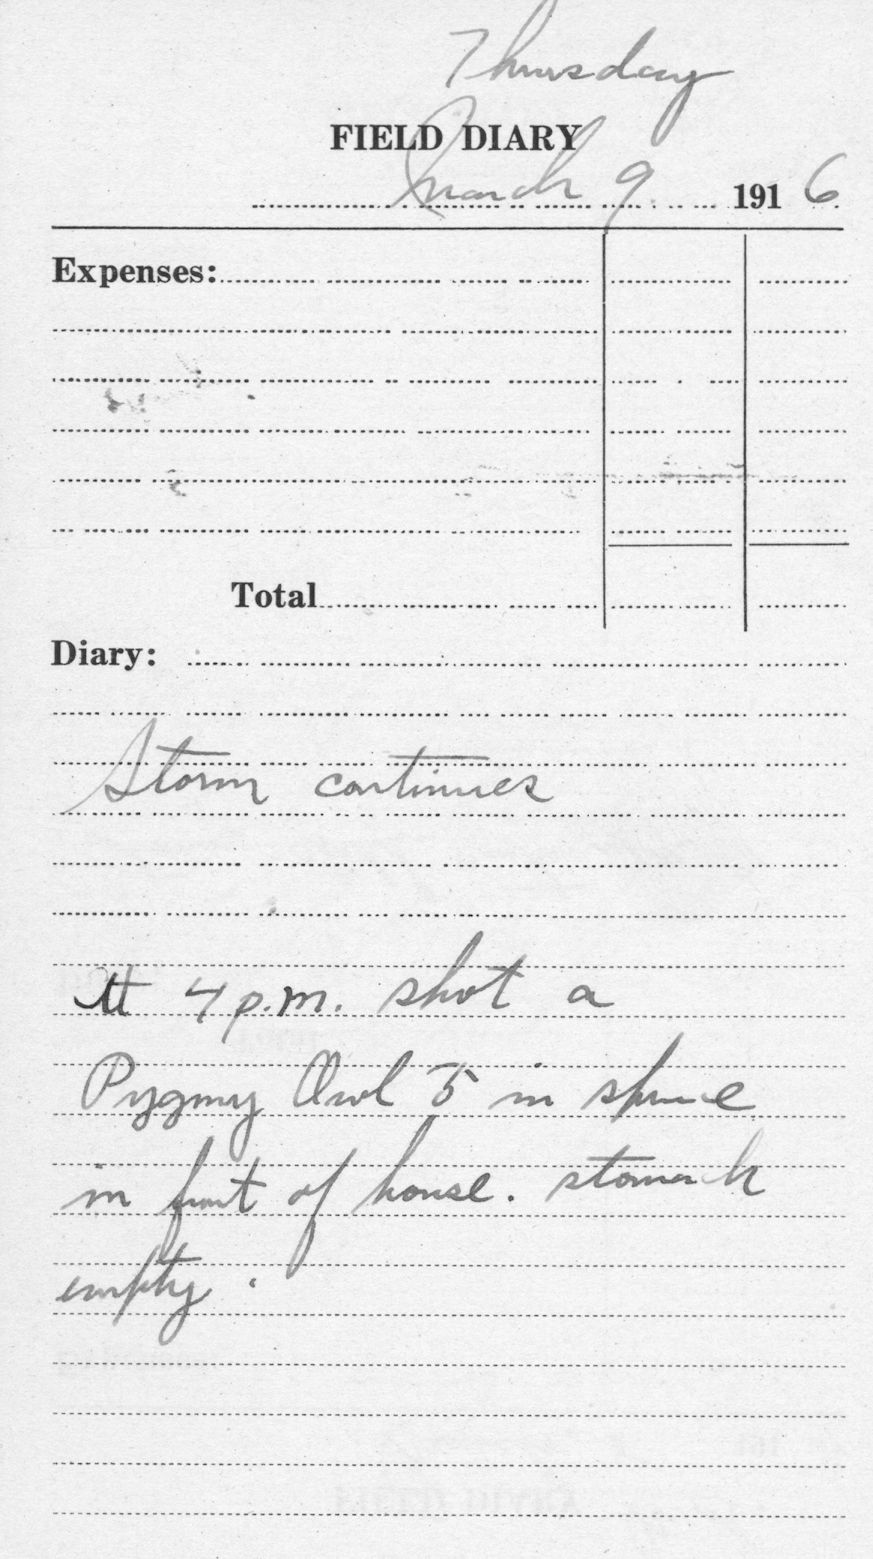 Thursday
FIELD DIARY
March 9 1916
Expenses:
Total
Diary:
Storm continues
At 4 p.m. shot a
Pygmy Owl 5 in spruce
in front of house. stomach
empty.